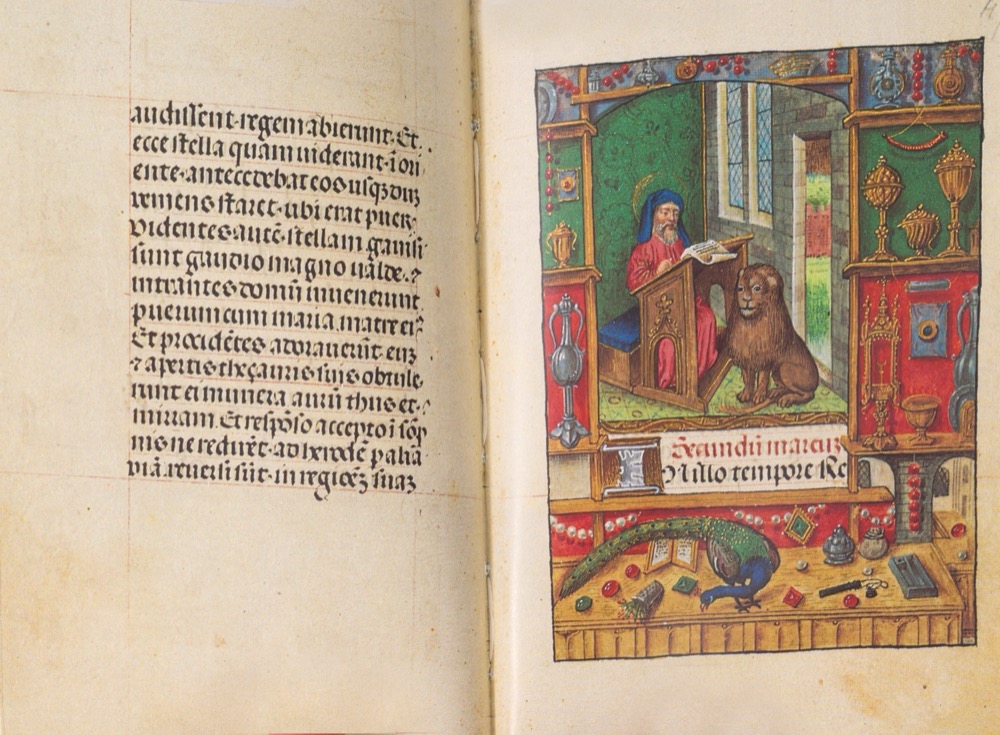 audissent·regem abierunt. Et
ecce stella quam viderant·ī ori
ente·antecedebat eos usqʒ dum
veniens staret·ubi erat puer·
Videntes autē·stellam gauisi
sunt gaudio magno valde·⁊
intrantes domū invenerunt
puerum cum maria matre eiꝰ
Et procidētes adoraverūt eum
⁊ apertis thesauris suis obtule,
runt ei munera aurū thus et·
mirram. Et respōso accepto ī sōp
nis ne redirēt·ad herodē p alia
viā reversi sūt·in regionē suam
Secundū marcum
N illo tempore Re